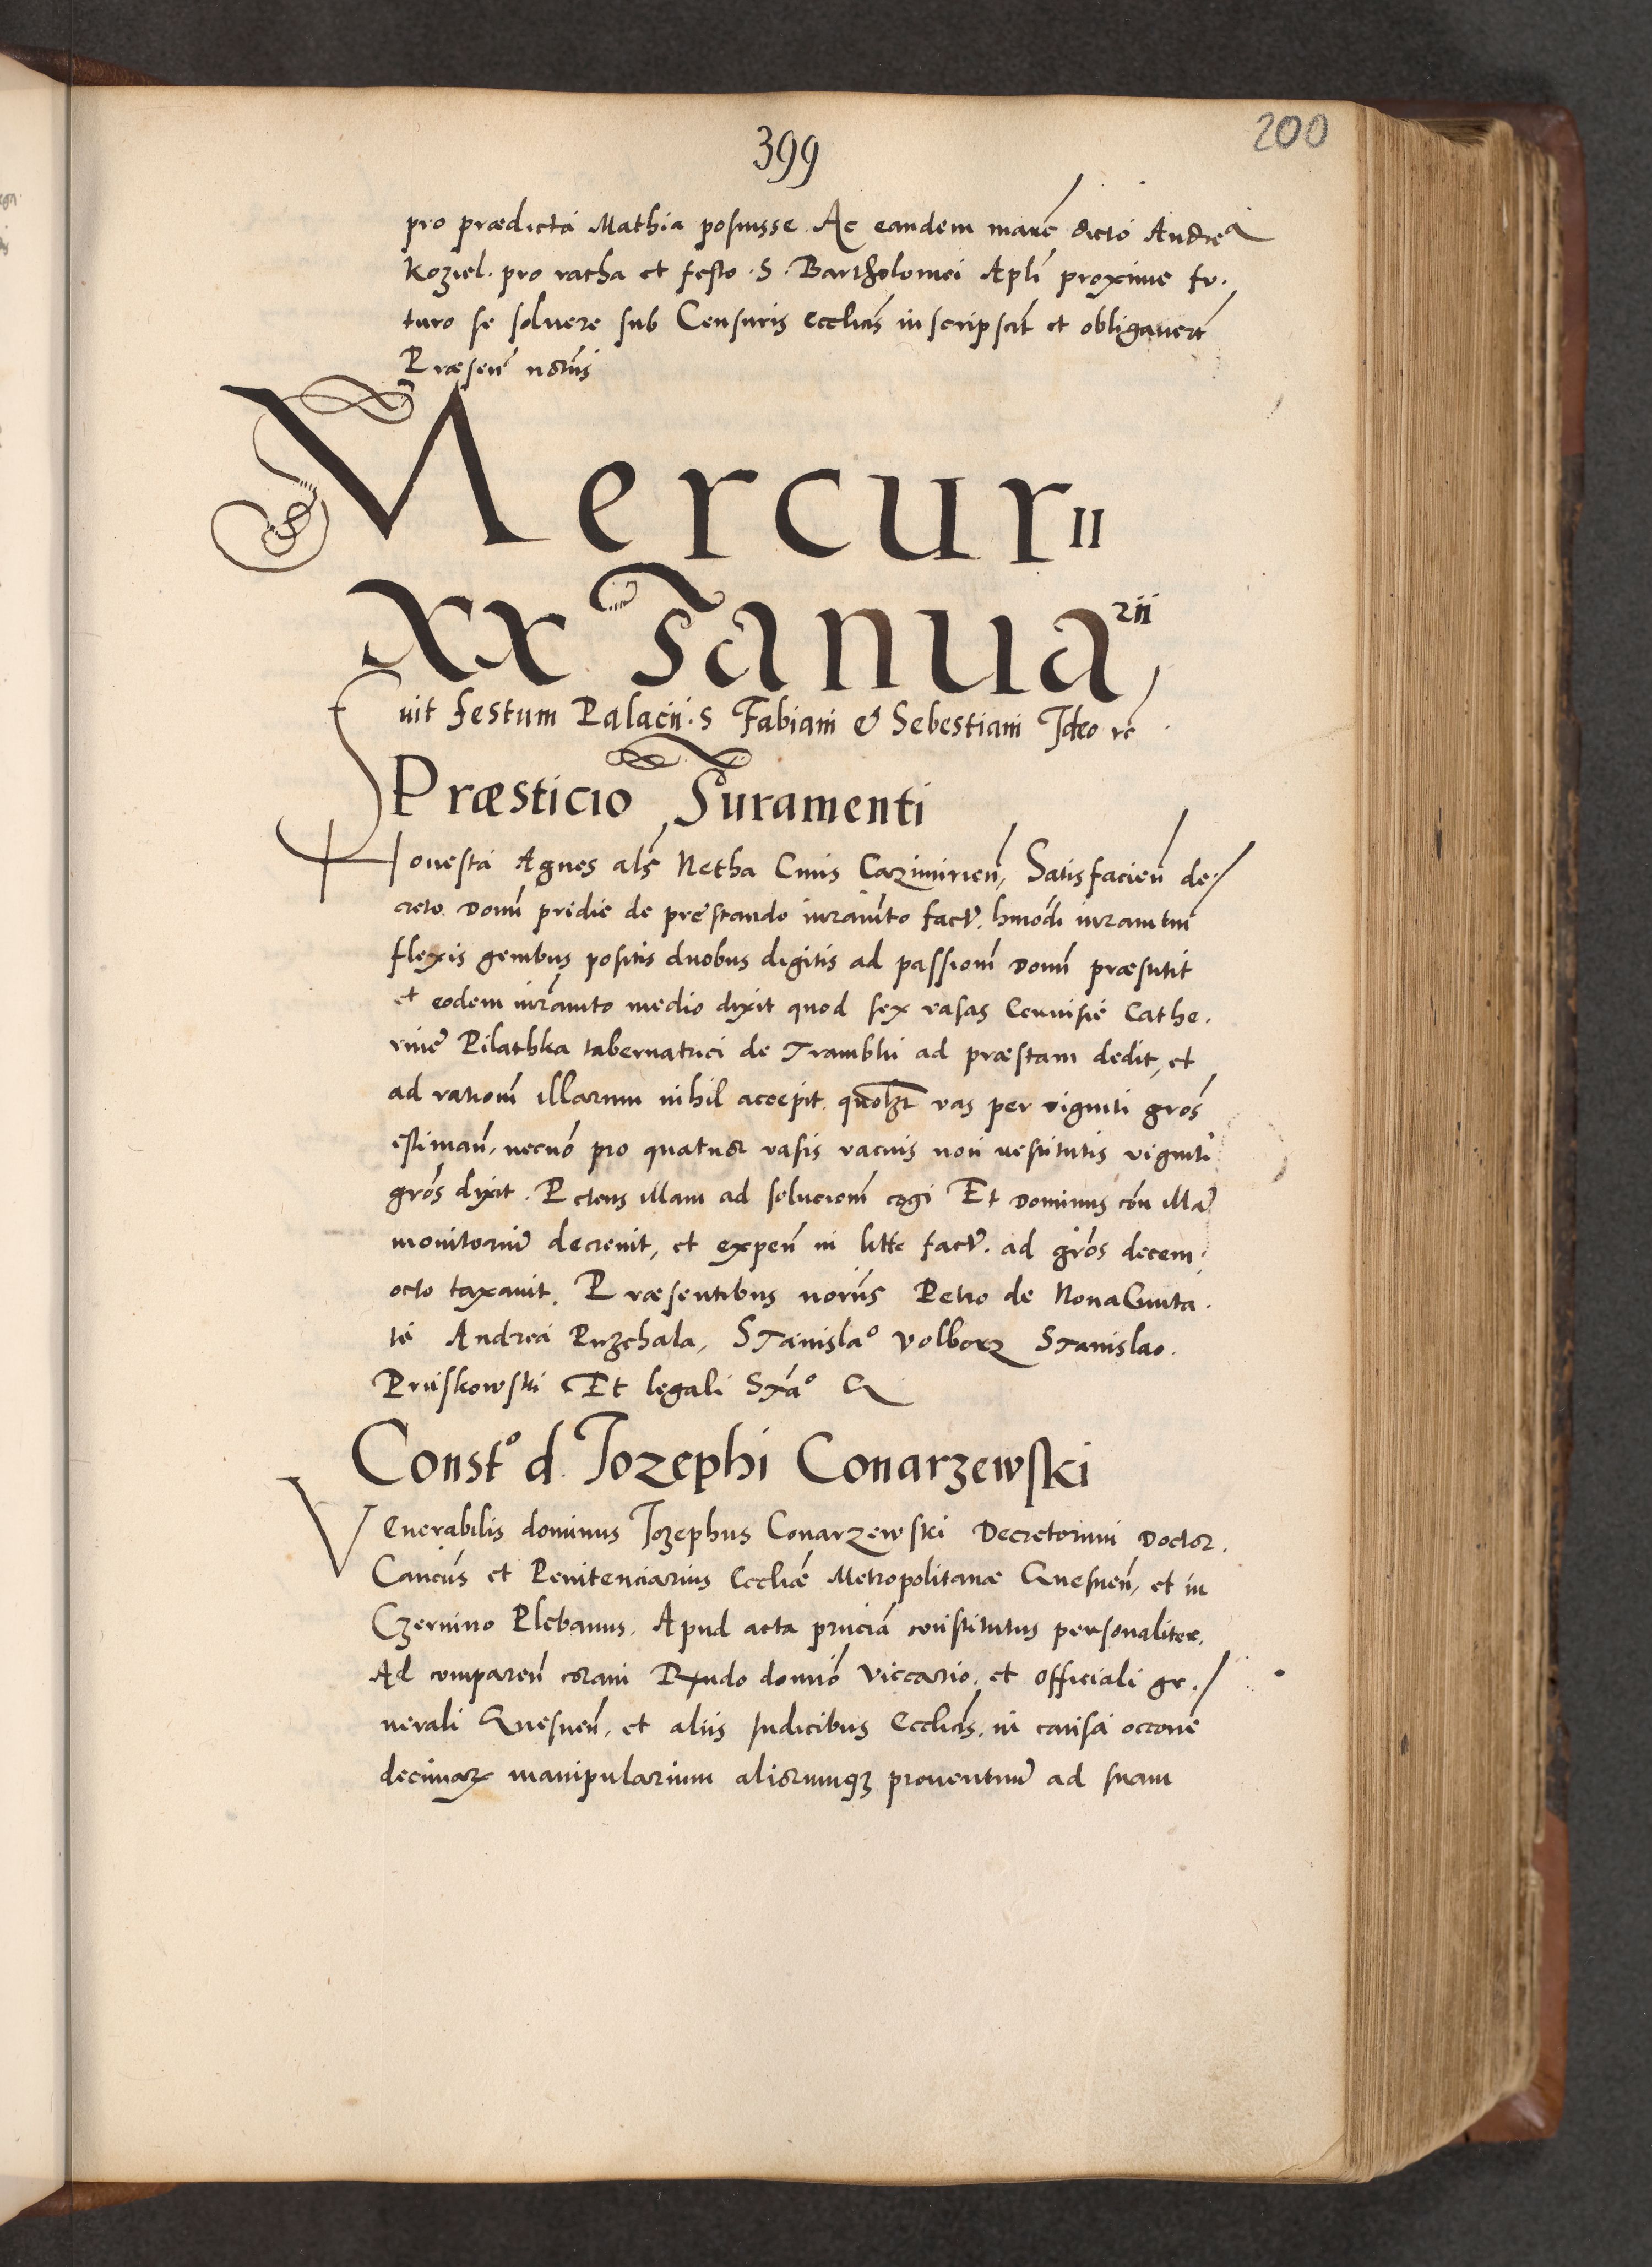 399
200
pro prædictá Mathia posuisse. Ac eandem marc̃ dictó Andreæ
Koziel. pro ratha et festo .S. Bartholomei Apłi proxime fu.
turo se soluere sub Censuris Eccliasc̃ inscripsit et obligauert̃
Præseñ notus̃
Mercurii
xx Ianuarii
Fuit festum Palacii .S Fabiani & Sebestiani Ideo rc̃
Præsticio Iuramenti
Honestá Agnes als̃ Netha Ciuis Cazimirieñ, Satisfacieñ de⸗
creto. Domĩ pridie de prestando iurañto fact̃. hmodi iuramtum
flexis genibus positis duobus digitis ad passionẽ Domĩ præstitit
et eodem iurañto medio dixit quod sex vasas Ceruisie Cathe.
rine Pilathka tabernatrici de Tramblii ad præstam dedit, et
ad rationẽ illarum nihil accepit. quodlz̃t vas per viginti gros̃
estimañ, necno pro quatuor vasis vacuis non restitutis viginti
gros̃ dixit. Petens illam ad solucionẽ cogi Et Dominus con̄ illã
monitoriũ decreuit, et expeñ in litte fact̃. ad gros̃ decem
octo taxauit. Præsentibus noriis̃ Petro de NouaCiuita.
te Andreá Puzchala, Stanislaº Volborz Stanislao.
Pruskowski Et legali Sxãº &
Constº d. Iozephi Conarzewski
Venerabilis dominus Iozephus Conarzewski Decretorum Doctor.
Cancus̃ et Penitenciarius Eccliæ Metropolitanæ Gnesneñ, et in
Czernino Plebanus. Apud acta pñciã constitutus personaliter.
Ad compareñ coram Rxndo domio Viccario. et Officiali ge⸗
nerali Gnesneñ, et aliis Iudicibus Eccliasc̃. in causa occone
decimarꝝ manipularium aliorumqꝫ prouentuũ ad suam